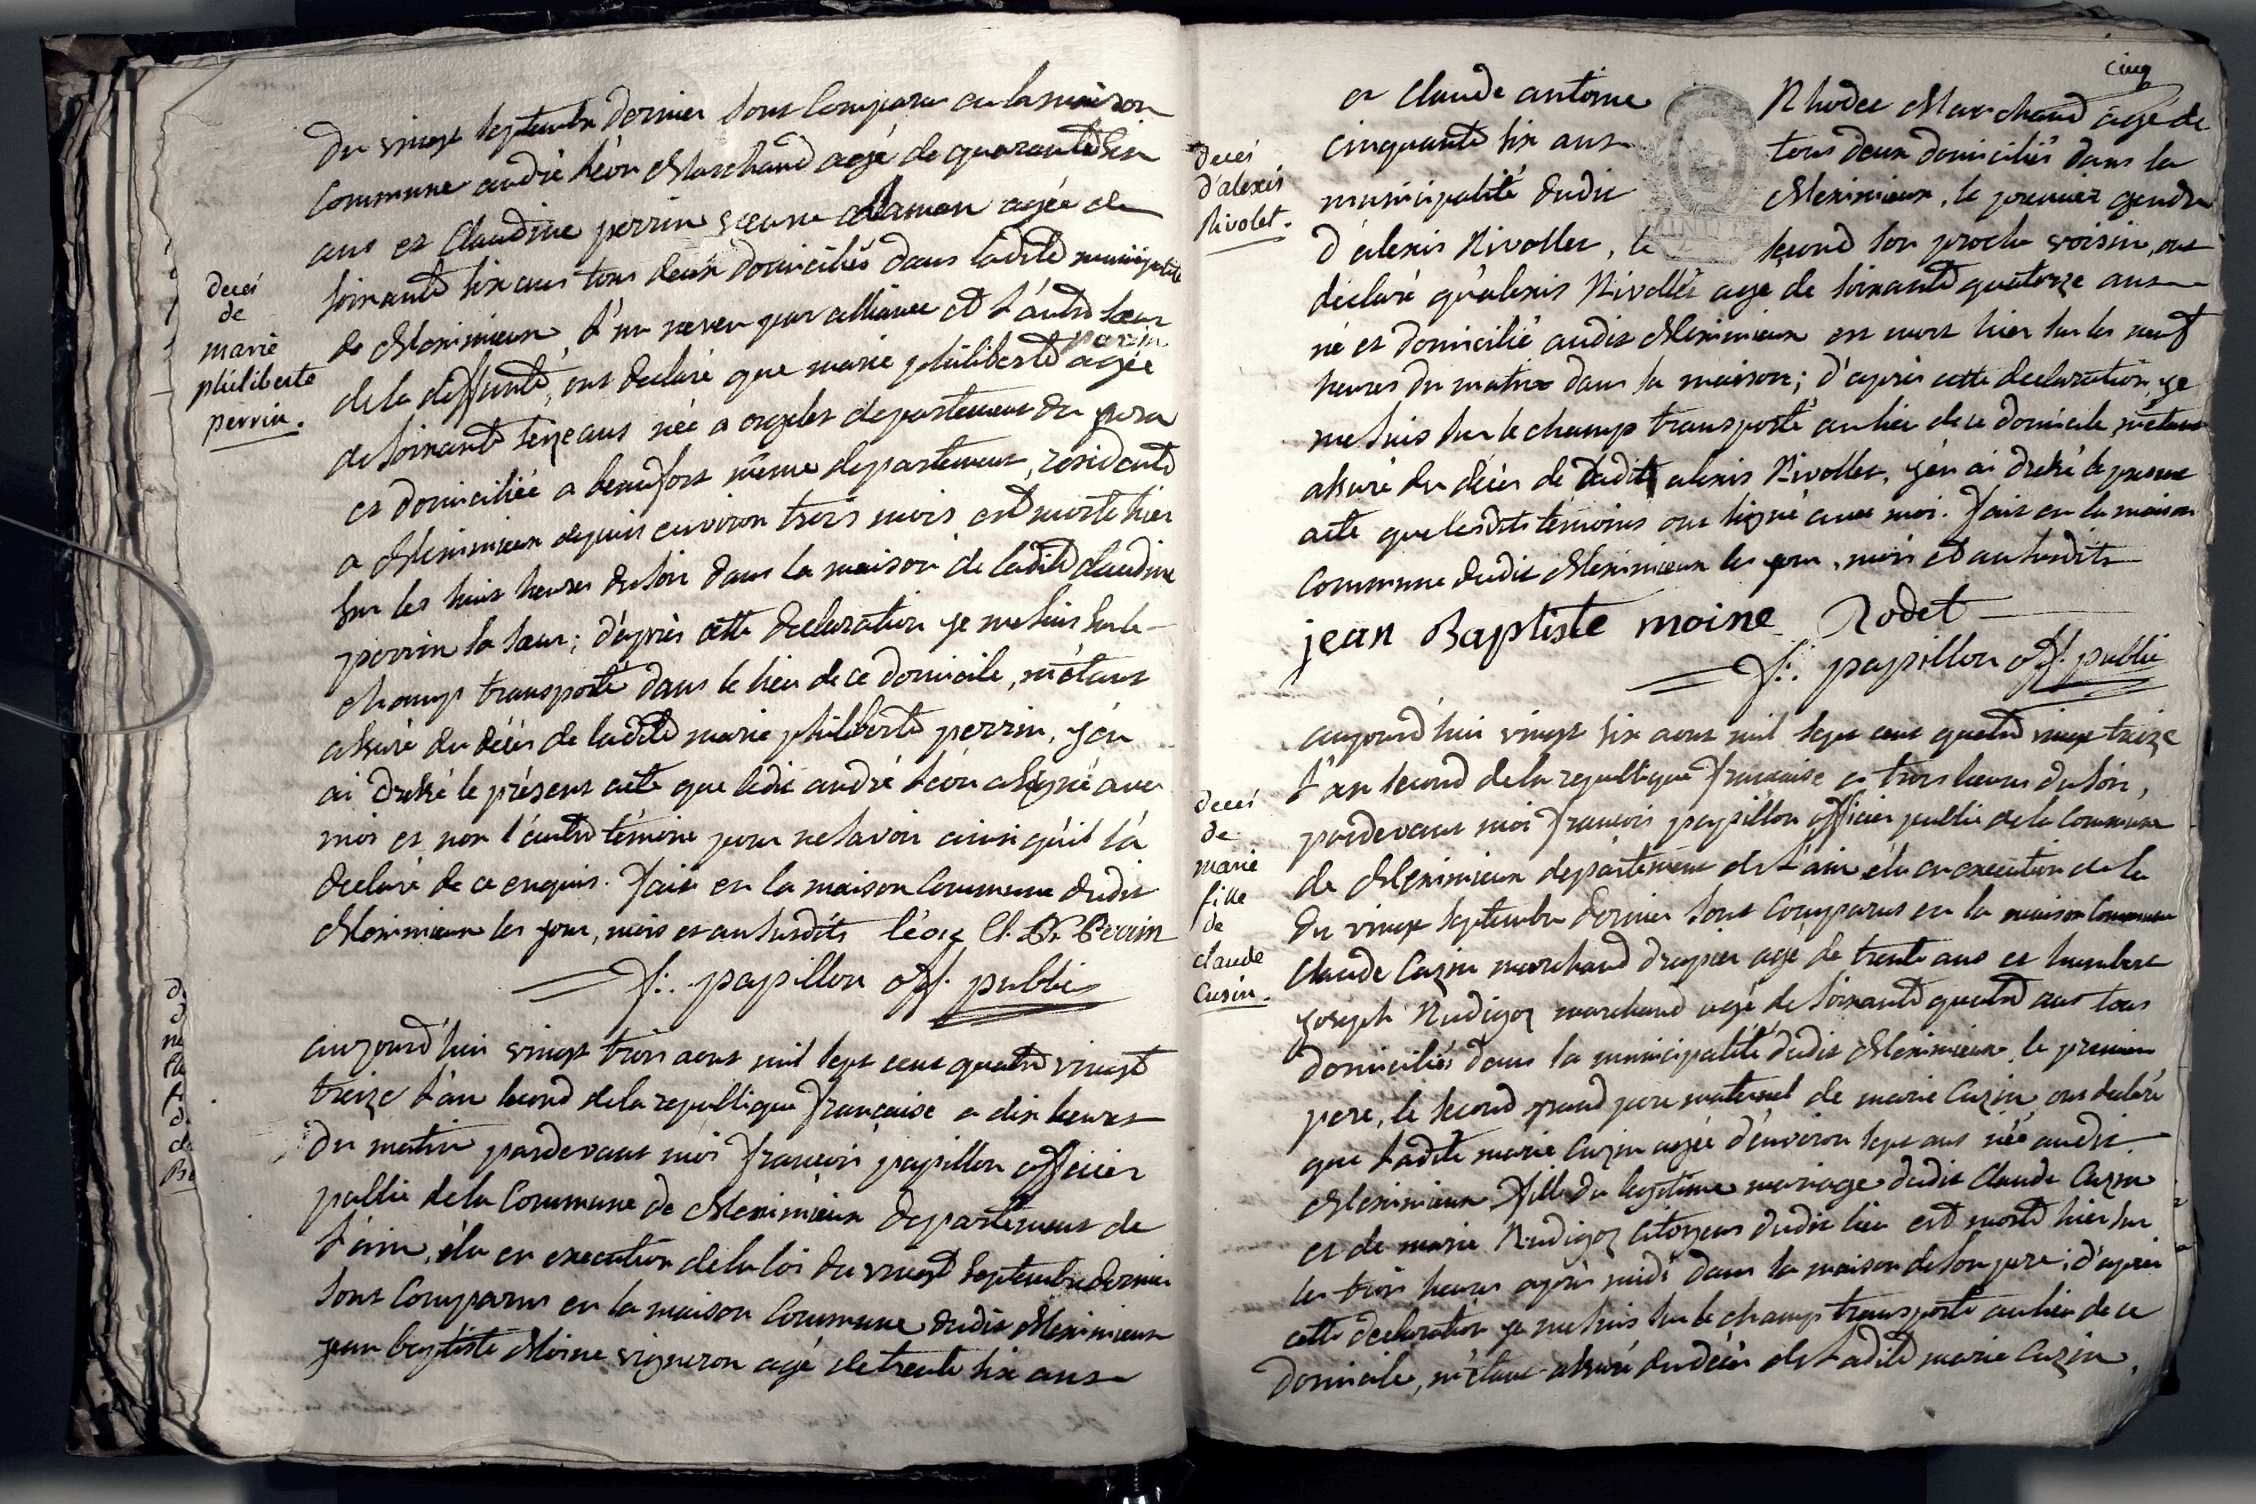 du vingt septembre dernier sont comparu en la maison
commune andré Léon Marchand agé de quarante six
ans et Claudine perrin agée de
soixante six ans tous deux domiciliés dans ladite municipalité
de Meximieux, l'un neveu par alliance et l'autre sœur
de la deffunte, ont declaré que marie philiberte perrin agée
de soixante seize ans née a orgelet departement du jura
et domiciliée a beaufort même departement, residente
a Meximieux depuis environ trois mois est morte hier
sur les huit heures du soir dans la maison de ladite claudine
perrin sa sœur; d'après cette declaration je me suis sur le
champ transporté dans le lieu de ce domicile, m'étant
assuré du décès de ladite marie philiberte perrin, j'en
ai dressé le présent acte que ledit andré Léon a signé avec
moi et non l'autre témoin pour ne savoir ainsi qu'il l'a
declaré de ce enquis. fait en la maison commune dudit
Meximieux les jour, mois et an susdits Léon Cl. Perrin
f: papillon off. public
decès
de
marie
philiberte
perrin.
aujourd'hui vingt trois aout mil sept cent quatre vingt
treize l'an second de la republique française a dix heures
du matin pardevant moi francois papillon officier
public de la Commune de Meximieux departement de
l'ain, élu en execution de la loi du vingt septembre dernier
sont comparus en la maison commune dudit Meximieux
jean baptiste Moine vigneron agé de trente six ans
cinq
et claude antoine Rhodet Marchand agé de
cinquante six ans tous deux domiciliés dans la
municipalité dudit Meximieux, le premier gendre
d'alexis Rivollet, le second son proche voisin, ont
declaré qu'alexis Rivollet agé de soixante quatorze ans
né et domicilié audit Meximieux est mort hier sur les neuf
heures du matin dans sa maison; d'après cette declaration, je
me suis sur le champ transporté au lieu de ce domicile, m'étant
assuré du décès de alexis Rivollet, j'en ai dressé le present
acte que lesdits témoins ont signé avec moi. fait en la maison
commune dudit Meximieux les jour, mois et an susdits
jean Baptiste moine Rodet
f: papillon off. public
decès
d'alexis
Rivolet.
aujourd'hui vingt six aout mil sept cent quatre vingt treize
l'an second de la republique française a trois heures du soir,
pardevant moi francois papillon officier public de la Commune
de Meximieux département de l'ain, élu en execution de la
du vingt septembre dernier sont comparus en la maison commune
Claude Cuzin marchand drapier agé de trente ans et humbert
joseph Rudigoz marchand agé de soixante quatre ans tous
domiciliés dans la municipalité dudit Meximieux, le premier
pere, le second grand pere maternel de marie Cuzin, ont declaré
que ladite marie Cuzin agée d'environ sept ans née audit
Meximieux fille du legitime mariage dudit Claude Cuzin
et de marie Rudigoz citoyens dudit lieu est morte hier sur
les trois heures après midi dans la maison de son pere; d'après
cette declaration je me suis sur le champ transporté au lieu de ce
domicile, m'étant assuré du décès de ladite marie Cuzin,
decès
de
marie
fille
de
claude
Cusin.